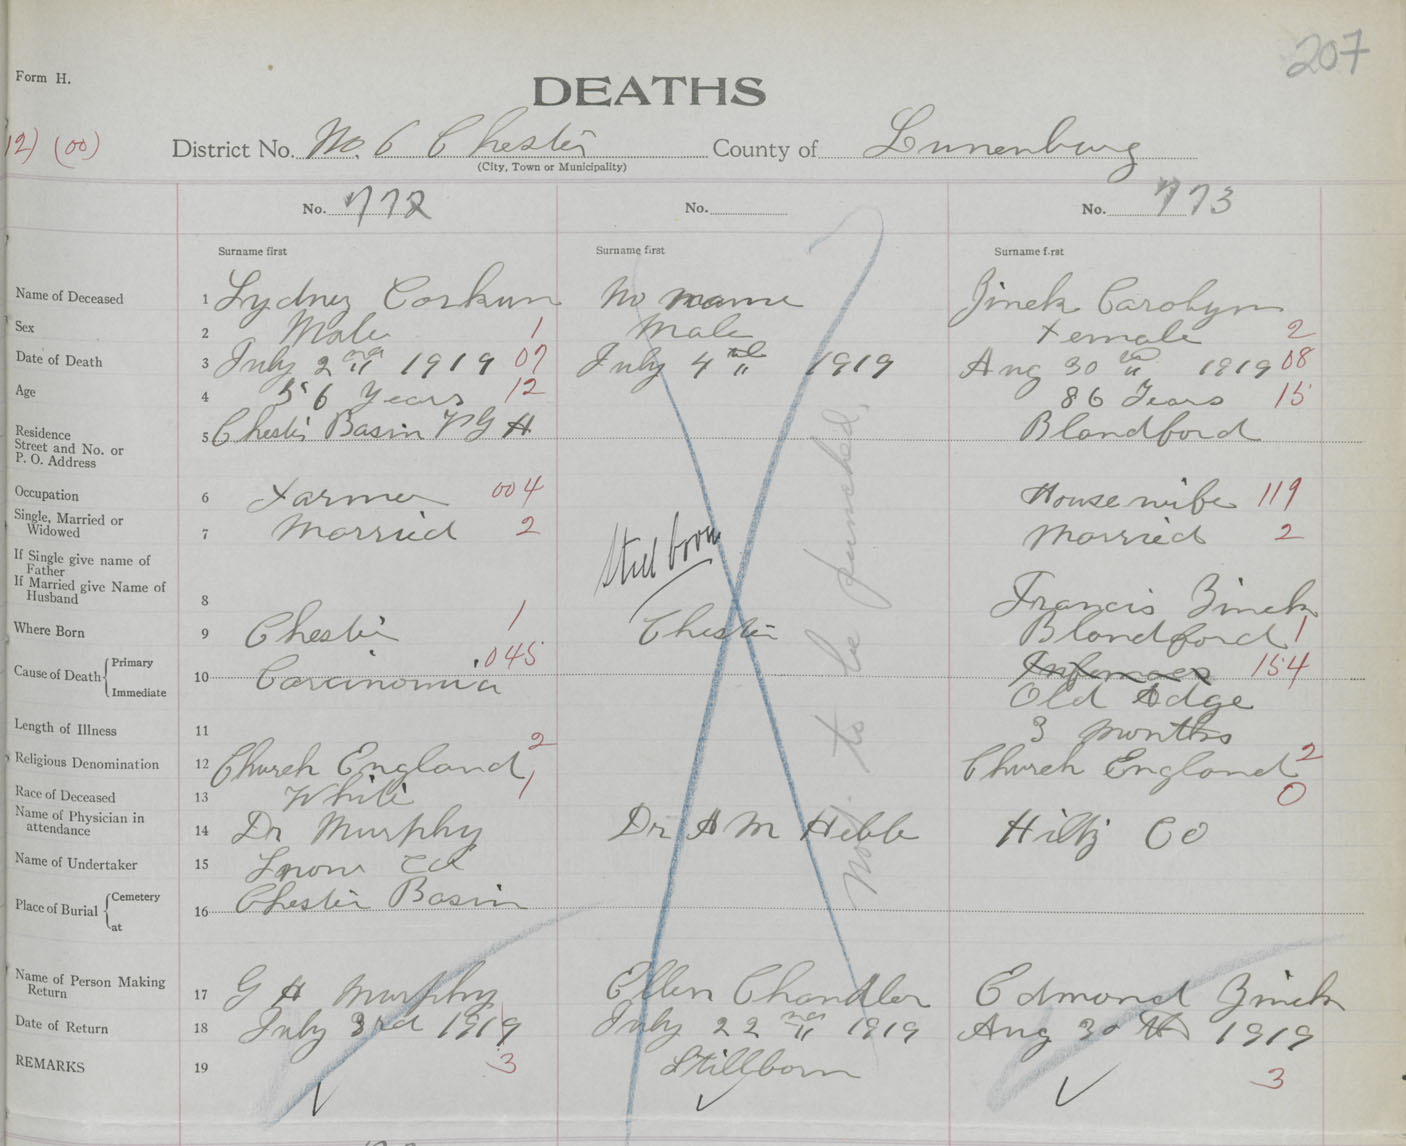 207
Form H.
DEATHS
12) (00)
District No. No. 6 Chester County of Lunenburg
(City, Town or Municipality)
No. 772 No. No. 773
Surname first Surname first Surname first
Name of Deceased 1 Sydney Corkum No name Zinck Carolyn
Sex 2 Male 1 Male Female 2
Date of Death 3 July 2nd 1919 07 July 4th 1919 Aug 30th 1919 08
Age 4 56 Years 12 86 Years 15
Residence
Street and No. or
P. O. Address
5 Chester Basin Blandford
Occupation 6 Farmer 004 House wife 119
Single, Married or
Widowed
7 Married 2 Married 2
Stillborn
If Single give name of
Father
If Married give Name of
Husband
8 Francis Zinck
Where Born 9 Chester 1 Chester Blandford 1
Cause of Death Primary
Immediate
10 Carcinomia 045 154
Old Adge
Length of Illness 11 3 months
Religious Denomination 12 Church England 2 Church England 2
Race of Deceased 13 White 1 0
Name of Physician in
attendance
14 Dr Murphy Dr A M Hebb Hiltz Co
Name of Undertaker 15 Snow Co
Place of Burial Cemetery
at
16 Chester Basin
Not to be punched.
Name of Person Making
Return
17 G H Murphy Ellen Chandler Edmond Zinck
Date of Return 18 July 3rd 1919 July 22nd 1919 Aug 30th 1919
REMARKS 19 3 Stillborn 3